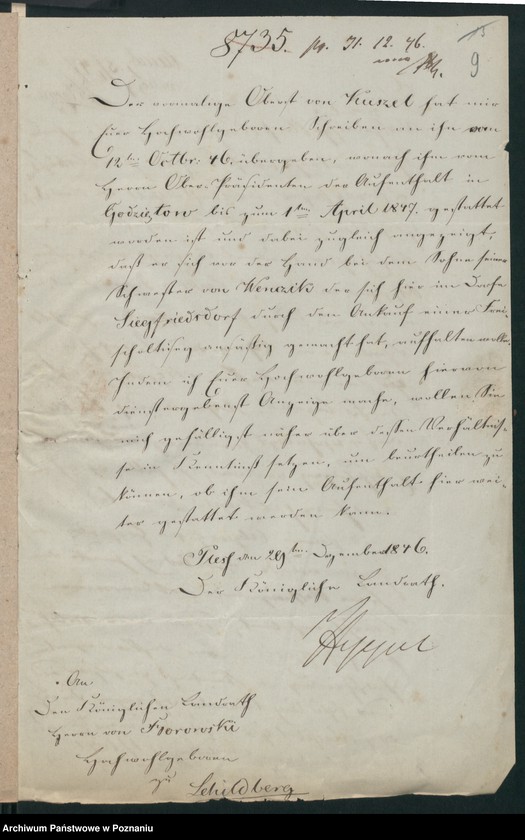 8735. pr. 31. 12. 46.
9
Der vormalige Oberst von Kuszel hat mir
Euer Hochwohlgeboren Schreiben an ihn vom
12ten Octbr. 46. übergeben, wonach ihm vom
Herrn Ober-Präsidenten der Aufenthalt in
bis zum 1ten April 1847. gestattet
worden ist und dabei zugleich angezeigt,
daß er sich vor der Hand bei dem Sohne seiner
Schwester von Wenczik der sich hier im Dorfe
Siegfriedsdorf durch den Ankauf einer Frei-
scholtisey ansäßig gemacht hat, aufhalten wolle.
Indem ich Euer Hochwohlgeboren hiervon
dienstergebenst Anzeige mache, wollen Sie
mich gefälligst näher über dessen Verhältnis-
se in Kenntniß setzen, um beurtheilen zu
können, ob ihm sein Aufenthalt hier wei-
ter gestattet werden kann.
Pless den 29ten Dezember 1846.
Der Königliche Landrath.
An
Den Königlichen Landrath
Herrn von
Hochwohlgeboren
zu
Schildberg
Archiwum Państwowe w Poznaniu